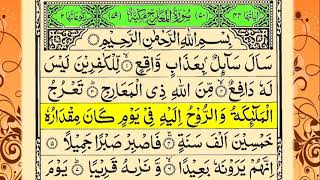 سُوۡرَةُ الۡمَعَارِجِ مَكِّيَّةٌ
بِسۡمِ اللّٰهِ الرَّحۡمٰنِ الرَّحِيۡمِ
سَاَلَ سَآئِلٌۢ بِعَذَابٍ وَّاقِعٍ ۙ﴿۱﴾ لِّلۡكٰفِرِيۡنَ لَيۡسَ
لَهٗ دَافِعٌ ۙ﴿۲﴾ مِّنَ اللّٰهِ ذِى الۡمَعَارِجِ ؕ﴿۳﴾ تَعۡرُجُ
الۡمَلٰٓئِكَةُ وَ الرُّوۡحُ اِلَيۡهِ فِىۡ يَوۡمٍ كَانَ مِقۡدَارُهٗ
خَمۡسِيۡنَ اَلۡفَ سَنَةٍ ۚ﴿۴﴾ فَاصۡبِرۡ صَبۡرًا جَمِيۡلًا ﴿۵﴾
اِنَّهُمۡ يَرَوۡنَهٗ بَعِيۡدًا ۙ﴿۶﴾ وَّ نَرٰٮهُ قَرِيۡبًا ؕ﴿۷﴾ يَوۡمَ